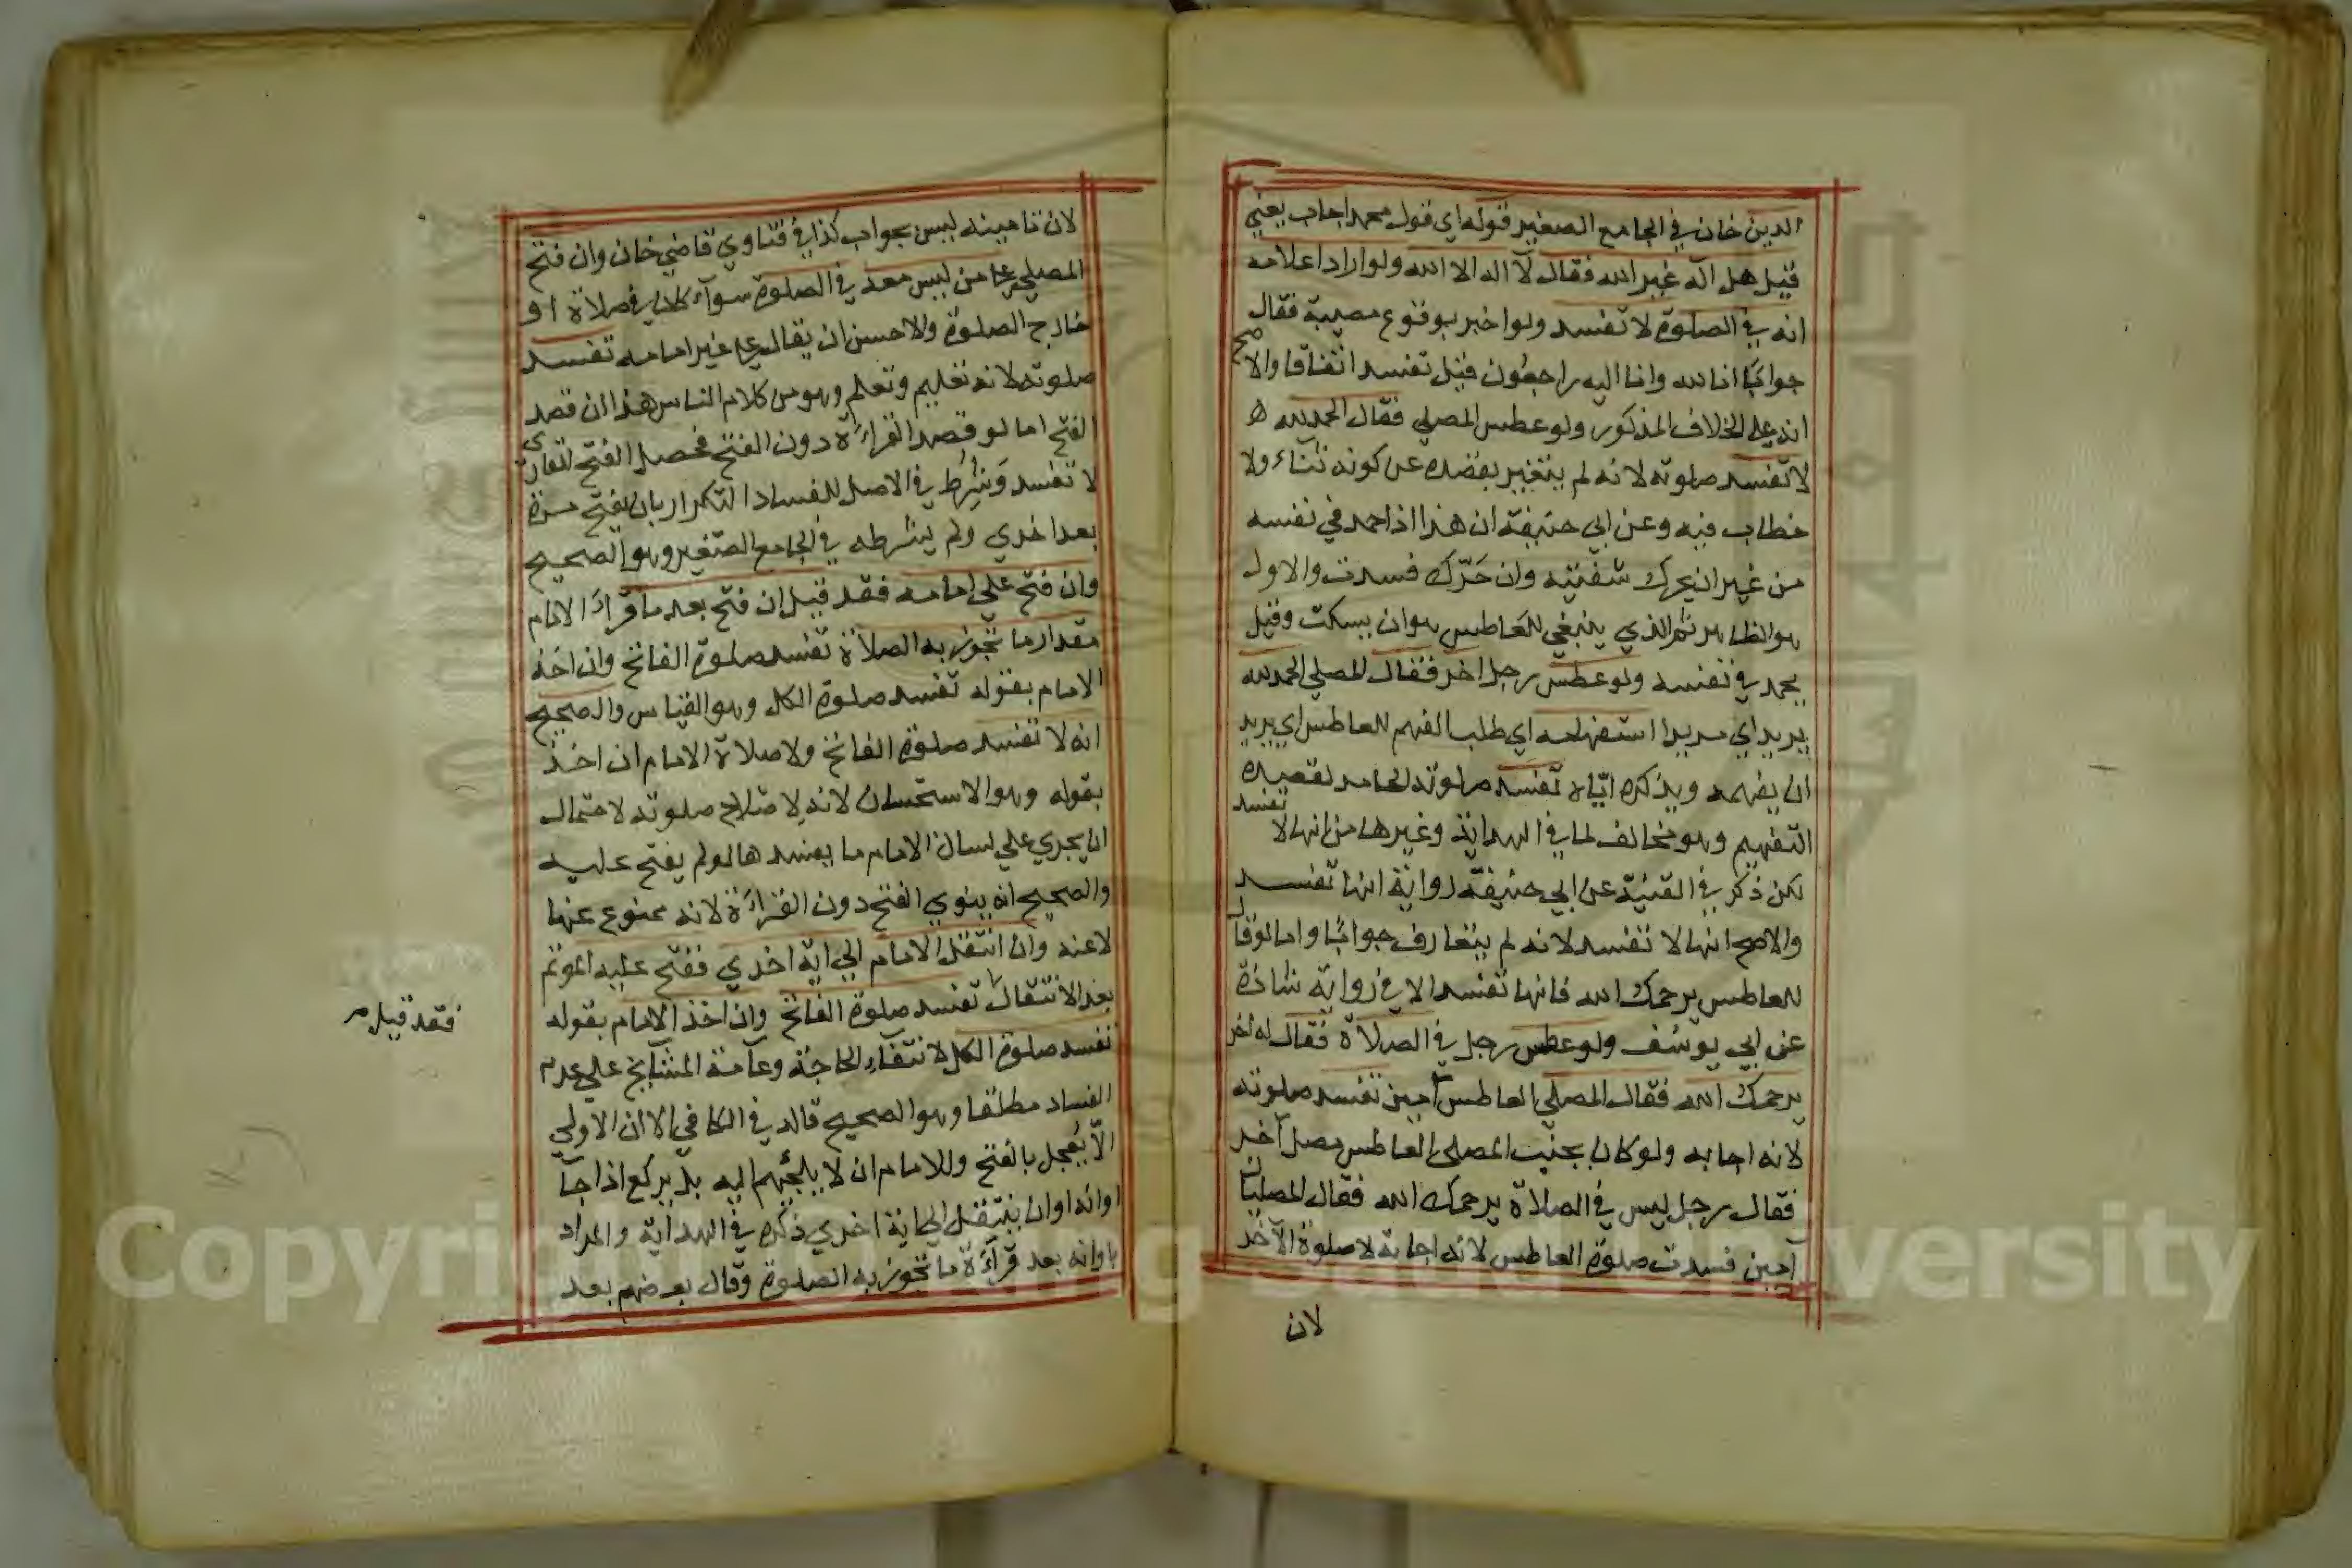 الدين خان في الجامع الصغير قوله اي قول محمد اجاب يعني
قيل هل اله غير الله فقال لآ اله الا الله ولو اراد اعلامه
انه في الصلوة لا تفسد ولو اخبر بوقوع مصيبة فقال
جوابًا انا لله وانا اليه راجعون قيل تفسد اتفاقا والاصح
انه على الخلاف المذكور ولو عطس المصلي فقال الحمد لله
لا تفسد صلوته لانه لم يتغير بقصده عن كونه ثناء ولا
خطاب فيه وعن ابي حنيفة ان هذا اذا حمد في نفسه
من غير ان يحرك شفتيه وان حَرّك فسدت والاول
هو الظاهر ثم الذي ينبغي للعاطس هو ان يسكت وقيل
يحمد في نفسه ولو عطس رجل اخر فقال المصلي الحمد لله
يريد اي مريدا استفهامه اي طلب الفهم للعاطس اي يريد
ان يفهمه ويذكره ايّاه تفسد صلوته الحامد لقصده
التفهيم وهو مخالف لما في الهداية وغيرها من انها لا تفسد
لكن ذكر في القنية عن ابي حنيفة رواية انها تفسد
والاصح انها لا تفسد لانه لم يتعارف جوابًا واما لو قال
للعاطس يرحمك الله فانها تفسد الا في رواية شاذة
عن ابي يوسف ولو عطس رجل في الصلاة فقال له اخر
يرحمك الله فقال المصلي العاطس آمين تفسد صلوته
لانه اجابه ولو كان بجنب المصلي العاطس مصل آخر
فقال رجل ليس في الصلاة يرحمك الله فقال المصليان
آمين فسدت صلوة العاطس لانه اجابة لا صلوة الآخر
لان
لان تامينه ليس بجواب كذا في فتاوي قاضي خان وان فتح
المصلي على من ليس معه في الصلوة سوآء كان في صلاة او
خارج الصلوة والاحسن ان يقال على غير امامه تفسد
صلوته لانه تعليم وتعلم وهو من كلام الناس هذا ان قصد
الفتح اما لو قصد القراءة دون الفتح فحصل الفتح
لا تفسد وشُرِط في الاصل للفساد التكرار بان يفتح مرة
بعد اخري ولم يشرطه في الجامع الصغير وهو الصحيح
وان فتح علي امامه فقد قيل ان فتح بعد ما قرأ الامام
مقدار ما تجوز به الصلاة تفسد صلوة الفاتح وان اخذ
الامام بقوله تفسد صلوة الكل وهو القياس والصحيح
انه لا تفسد صلوة الفاتح ولا صلاة الامام ان اخذ
بقوله وهو الاستحسان لانه لاصلاح صلوته لاحتمال
ان يجري علي لسان الامام ما يفسدها لو لم يفتح عليه
والصحيح انه ينوي الفتح دون القراءة لانه ممنوع عنها
لا عنه وان انتقل الامام الي اية اخري ففتح عليه الموتم
بعد الانتقال تفسد صلوة الفاتح وان اخذ الامام بقوله
فقد قيل
تفسد صلوة الكل لانتفآء الحاجة وعآمة المشايخ علي عدم
الفساد مطلقا وهو الصحيح قاله في الكافي الا ان الاولي
الاّ يعجل بالفتح وللامام ان لا يلجئهم اليه بل يركع اذا جآ
اوانه او ان ينتقل الي اية اخري ذكره في الهداية والمراد
باوانه بعد قرآءة ما تجوز به الصلوة وقال بعضهم بعد